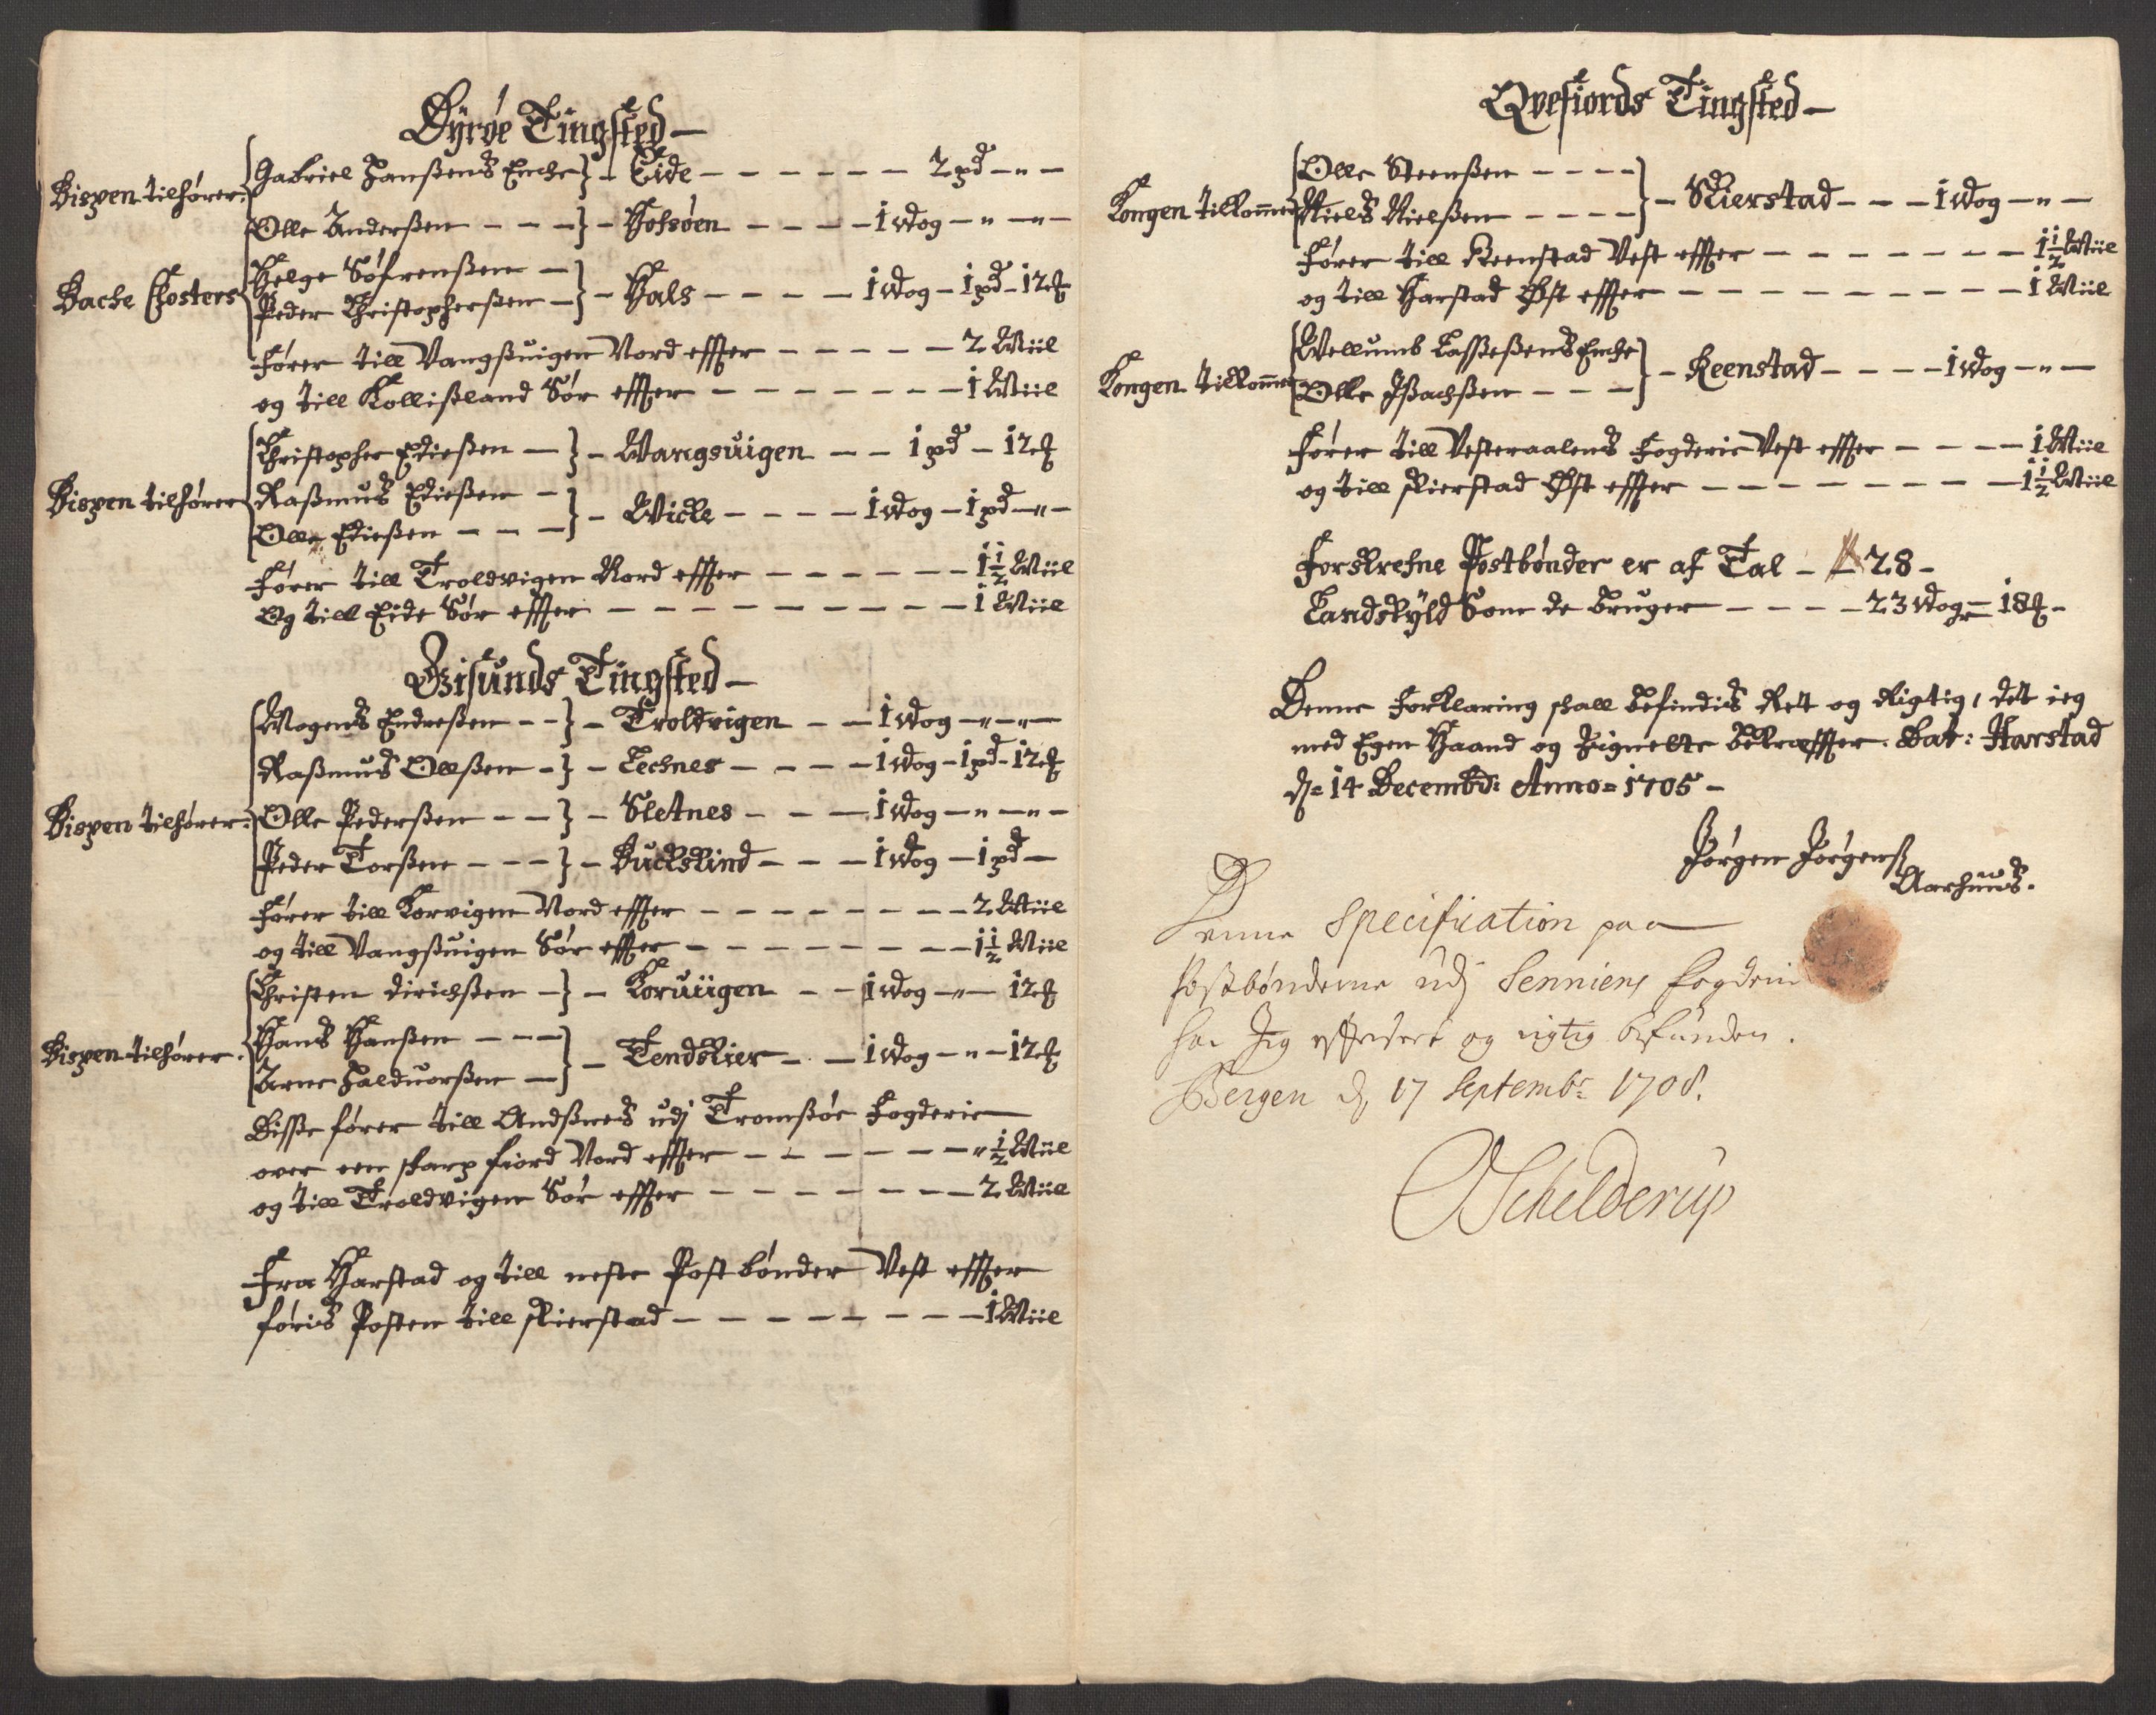 Dÿrøe Tingsted
Bispen tilhører: Gabriel Hanßens Encke - Eide - - - 2 pd - " -
Olle Anderßen - - - Hofsøen - - - 1 wog - " - " -
Bache Closters Helge Søfrenßen -
Peder Christopherßen - - Hals - - - 1 wog - 1 pd - 12 ℔
fører till Vangßuigen Nord effter - - - 2 Miil
og till Kollißland Sør effter - - - 1 Miil
Christopher Edisßen - - Wangsuigen - - 1 pd - 12 ℔
Bispen tilhører Raßmus Edisßen -
Olle Edisßen - - - Wicke - - - 1 wog - 1 pd - " -
fører till Troldvigen Nord effter - - - 1½ Miil
Og till Eide Sør effter - - - 1 Miil
Gisunds Tingsted
Mogens Endreßen - - - Troldvigen - - 1 wog - " - " -
Raßmus Olleßen - - Lechnes - - - 1 wog - 1 pd - 12 ℔
Bispen tilhører: Olle Pederßen - - - Sletnes - - - 1 wog - " - " -
Peder Torßen - - - Buckskind - - - 1 wog - 1 pd -
fører till Korvigen Nord effter - - - 2 Miil
og till Vangßuigen Sør effter - - - 1½ Miil
Christen Dirichßen - - Koruiigen - - 1 wog - " - 12 ℔
Bispen tilhører. Hans Hanßen - - -
Arne Halduorßen - - Tendskier - - 1 wog - " - 12 ℔
Disse fører till Andßnes udj Tromßøe Fogderie
over een skarp fiord Nord effter - - - " ½ Miil
og till Troldvigen Sør effter - - - 2 Miil
Fra Harstad og till neste Postbønder Vest effter
føris Posten till Skierstad - - - 1 Miil
Qvefiords Tingsted
Olle Steenßen - - - -
Kongen tilkommer Niels Nielßen - - - - - Skierstad - - - 1 wog - " -
fører till Reenstad Vest effter - - - 1½ Miil
og till Harstad Øst effter - - - 1 Miil
Mellumb Lasseßens Encke
Kongen tilkommer Olle Ißachßen - - - - Reenstad - - - 1 wog - " -
fører till Vesteraalens Fogderie Vest effter - - - 1 Miil
og till Skierstad Øst effter - - - 1½ Miil
Forskrefne Postbønder er af Tal - 28 -
Landskÿld Som de bruger - - - 23 wog - 18 ℔ -
Denne Forklaring skall befindis Ret og Rigtig, det ieg
med Egen Haand og Zignette bekræffter. Dat: Harstad
d= 14 Decembr: Anno= 1705 -
Jørgen Jørgenß
Aarhuus.
Denne Specification paa
Postbønderne udj Senniens fogderie
har Jeg efterseet og rigtig befunden.
Bergen d, 17 Septembr: 1708.
Schelderup